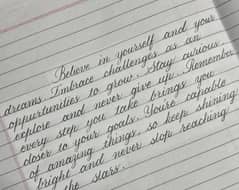 Believe in yourself and your
dreams. Embrace challenges as an
oppurtunities to grow. Stay curious
explore and never give up. Remember
every step you take brings you
closer to your goals. You're capable
of amazing things so keep shining
bright and never stop reaching
the stars.